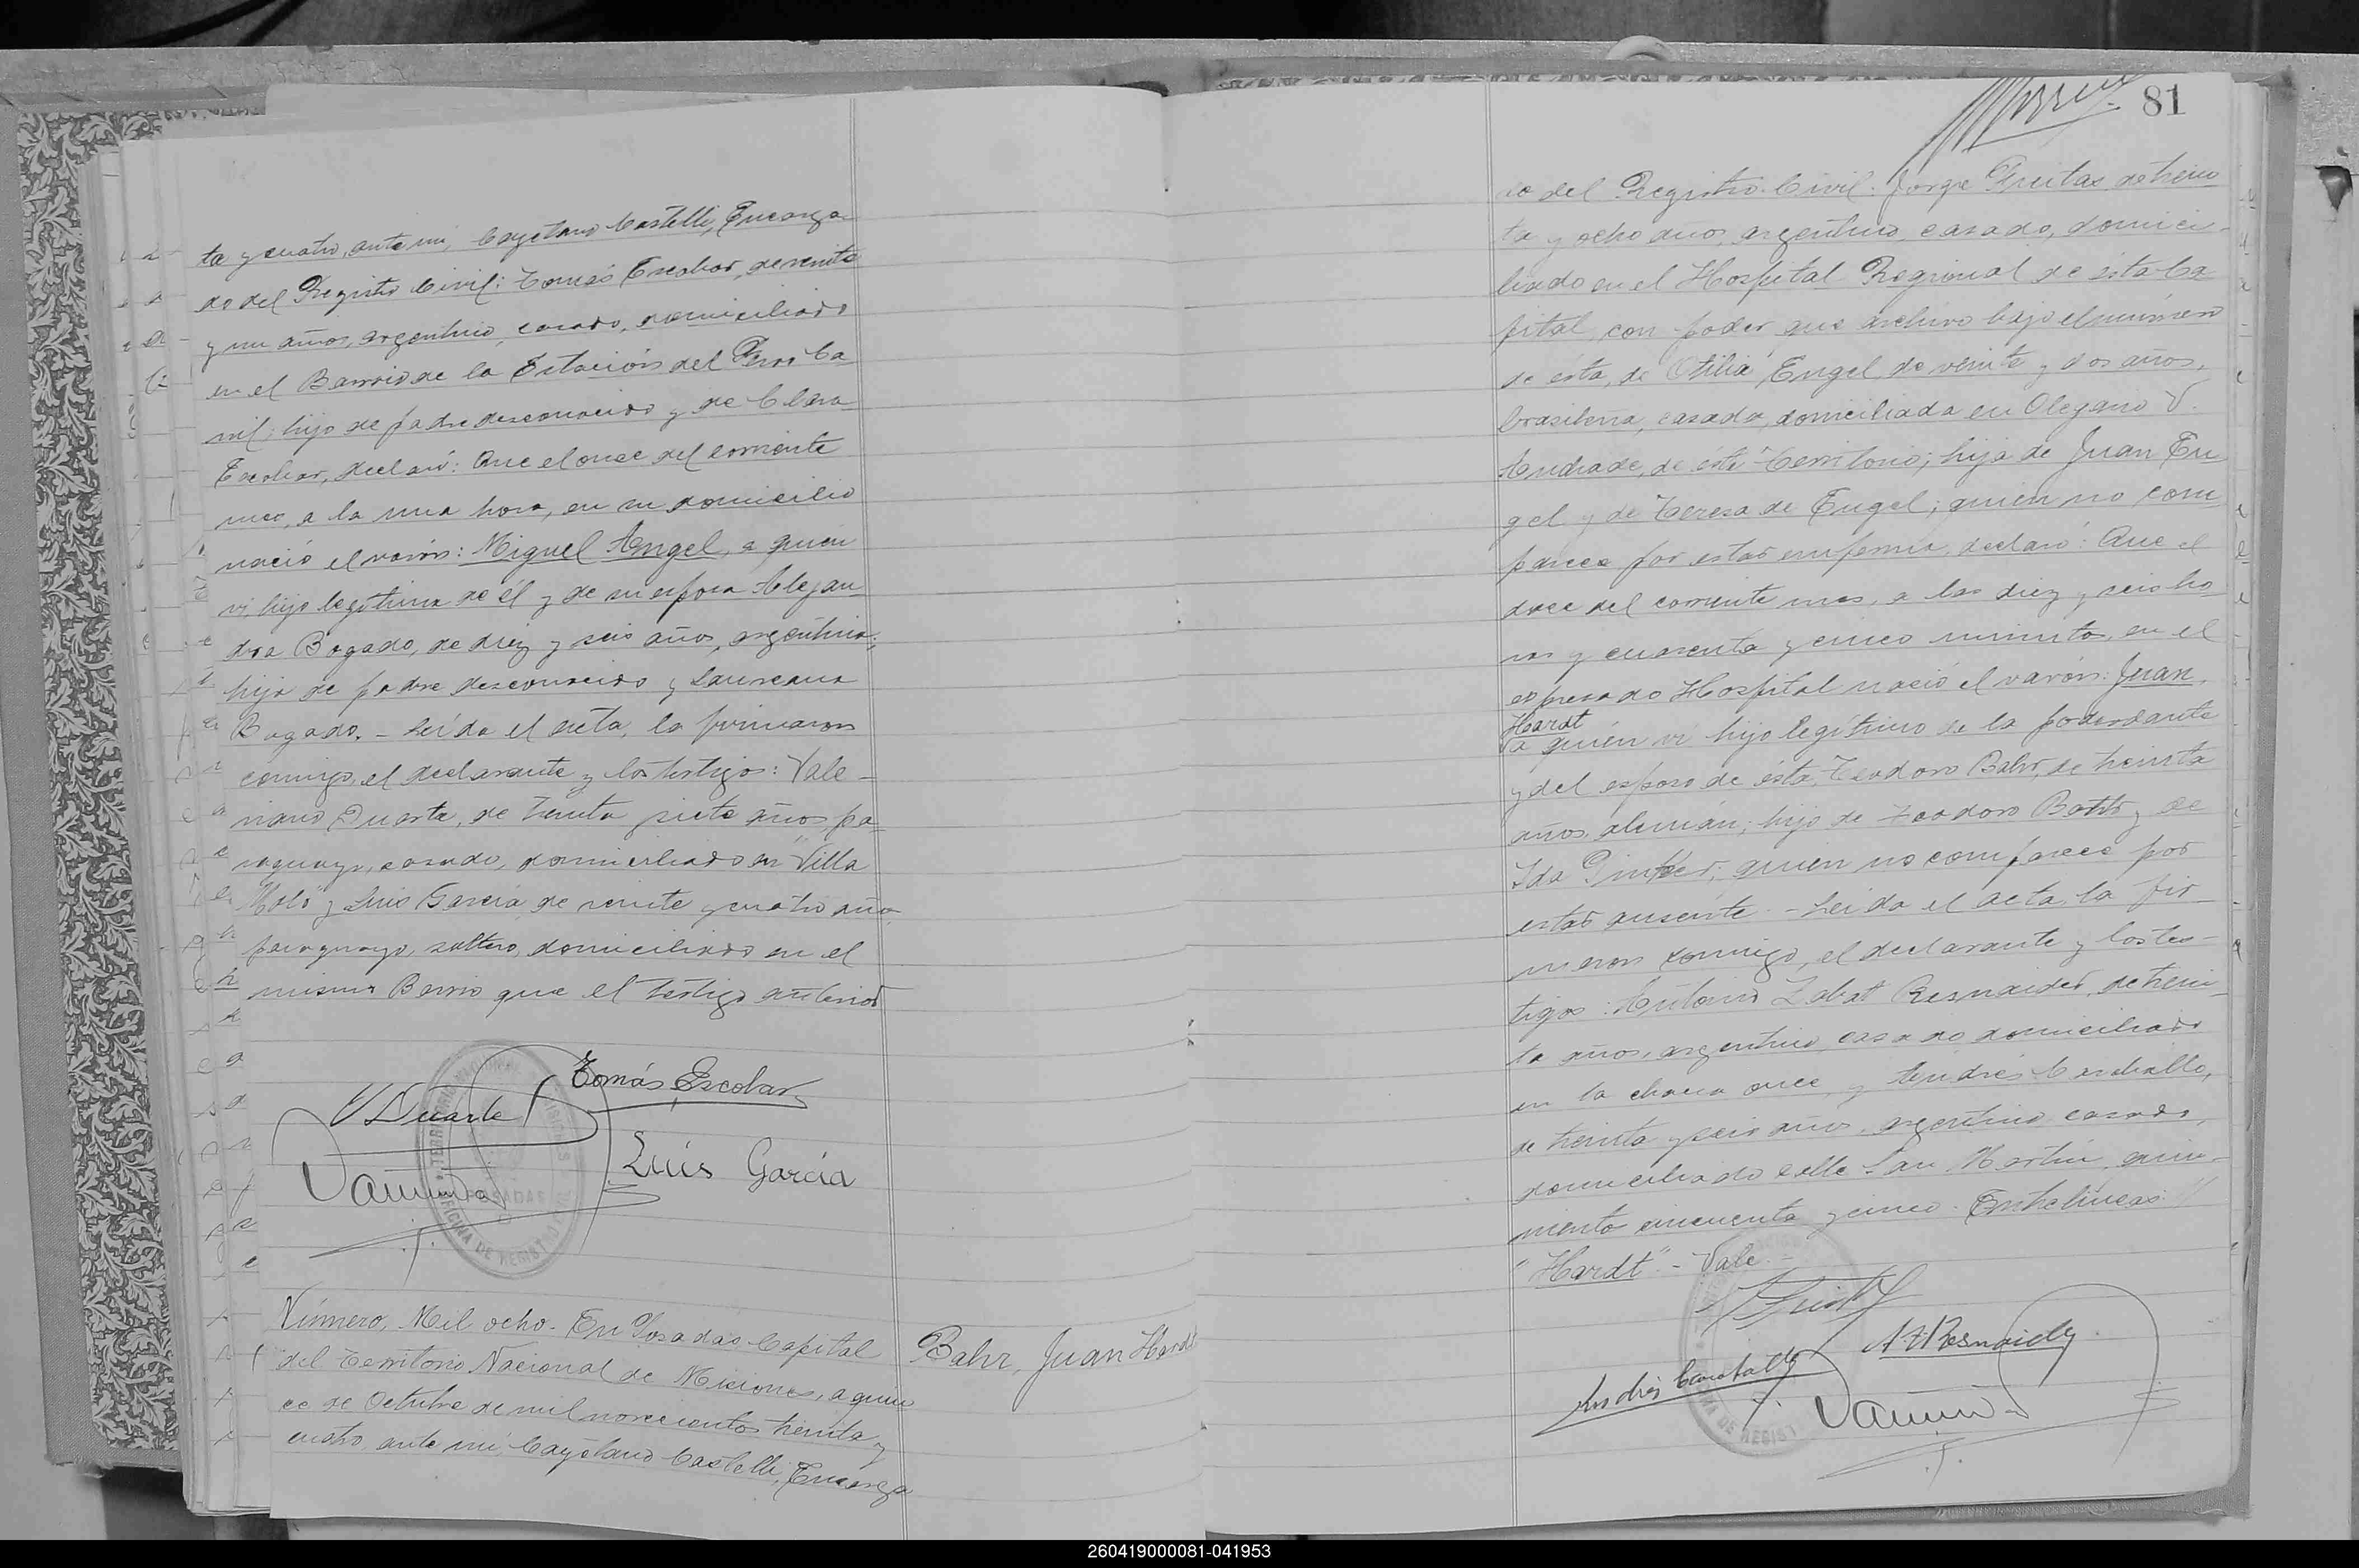 ta y cuatro, ante mi, Cayetano Castelli, Encarga-
do del Registro Civil: Tomás Escobar, de veinte
y un años, argentino, casado, domiciliado
en el Barrio de la Estación del Ferro Ca-
rril; hijo de padre desconocido y de Clara
Escobar, declaró: Que el once del corriente
mes, a la una hora, en su domicilio
nació el varón: Miguel Angel, a quien
vi, hijo legítimo de él y de su esposa Alejan-
dra Bogado, de diez y seis años, argentina;
hija de padre desconocido y Laureana
Bogado. - Leída el acta, la firmaron
conmigo, el declarante y los testigos: Vale-
riano Duarte, de treinta y siete años, pa-
raguayo, casado, domiciliado en "Villa
Mola" y Luis García, de veinte y cuatro años
paraguayo, soltero, domiciliado en el
mismo Barrio que el testigo anterior
Tomás Escobar
V Duarte
Luis García
POSADAS
OFICINA DE REGISTRO
Número, Mil ocho. En Posadas Capital
del Territorio Nacional de Misiones, a quin
ce de Octubre de mil novecientos treinta y
cuatro, ante mí, Cayetano Castelli, Encarga
Bahr, Juan Hardt
81
do del Registro Civil: Jorge Freitas, de trein
ta y ocho años, argentino, casado, domici-
liado en el Hospital Regional de ésta Ca
pital, con poder que archivo bajo el número
de ésta, de Otilia Engel, de veinte y dos años,
brasilera, casada, domiciliada en Olegario V.
Andrade, de éste Territorio; hija de Juan En
gel y de Teresa de Engel; quien no com
parece por estar enferma, declaró: Que el
doce del corriente mes, a las diez y seis ho
ras y cuarenta y cinco minutos, en el
expresado Hospital nació el varón: Juan
Hardt
a quién vi hijo legítimo de la poderdante
y del esposo de ésta, Teodoro Bahr, de treinta
años, alemán; hijo de Teodoro Bahr y de
Ida quien no comparece por
estar ausente. - Leída el acta, la fir
maron conmigo, el declarante y los tes-
tigos: Antonio Zabat Resnaider, de trein-
ta años, argentino, casado domiciliado
en la chacra once, y Andrés Caraballo,
de treinta y seis años, argentino, casado,
domiciliado calle San Martín, quin-
nientos cincuenta y cinco. Entrelíneas:
"Hardt" - Vale. -
A Z Resnaider
Andrés Caraballo
DE REGIST